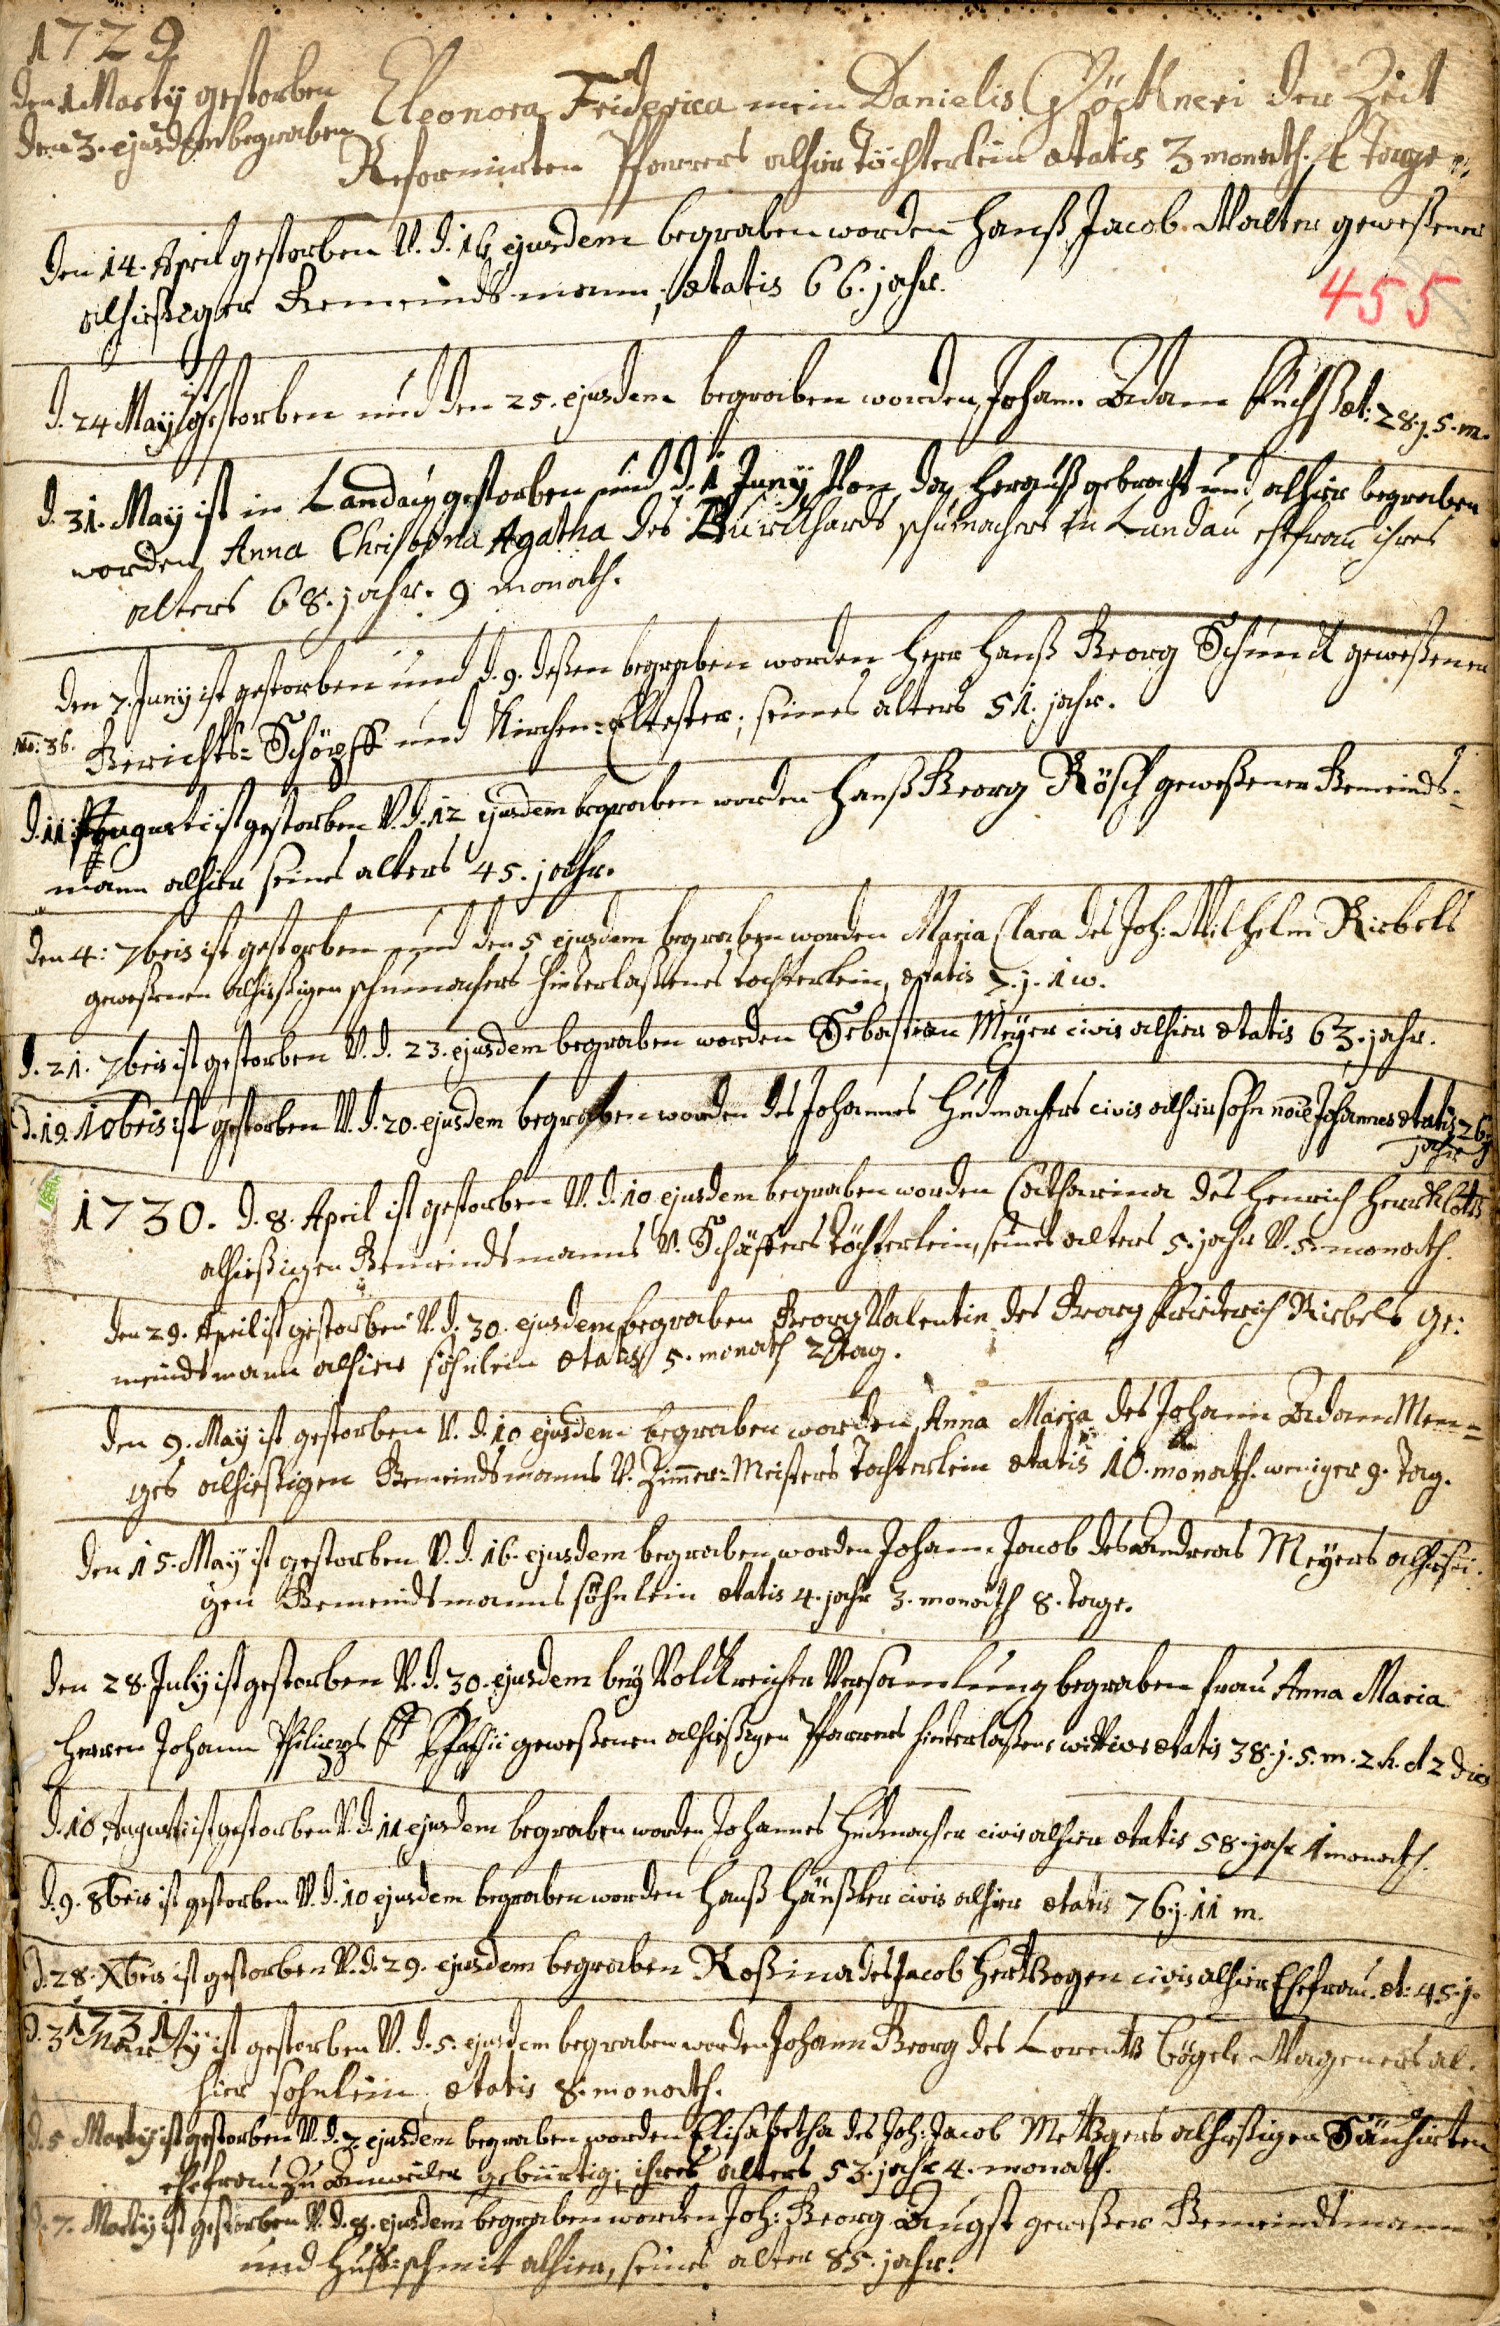 1729
den 1 Marty gestorben
den 3. ejusdem begraben
Eleonora Friderica mein Danielis Göckneri der Zeit
Reformirten Pfarrers alhier töchterlein ætatis 3 monath. 4 tage
den 14. April gestorben V. d. 16 ejusdem begraben worden Hanß Jacob Walter geweßener
alhießiger Gemeindsmann, ætatis 66. jahr.
455
d. 24 May ist gestorben und den 25. ejusdem begraben worden, Johann Adam Fuchß æt: 28. j. 5. m.
d. 31. May ist in Landau gestorben und d. 1 Juny Von da herauß gebracht und alhier begraben
worden Anna Christina Agatha des Burckhards schumachers in Landau ehfrau ihres
alters 68. jahr. 9 monath.
den 7. Juny ist gestorben und d. 9. deßen begraben worden Herr Hanß Georg Schmidt geweßener
No: 36. Gerichts=Schöpff und Kirchen=Eltester; seines alters 51. jahr.
d. 11. Augusti ist gestorben V. d. 12 ejusdem begraben worden Hanß Georg Rösch geweßener Gemeinds=
mann alhier seines alters 45. jahr.
den 4: 7bris ist gestorben und den 5 ejusdem begraben worden Maria Clara des Joh: Wilhelm Riebels
geweßenen alhießigen schumachers hinterlaßenes tochterlein, ætatis 7. j. 1 w.
d. 21. 7bris ist gestorben V. d. 23. ejusdem begraben worden Sebastian Meÿer civis alhier ætatis 63. jahr.
d. 19. 10bris ist gestorben V. d. 20. ejusdem begraben worden des Johannes Hudmachers civis alhier sohn noie Johannes ætatis 26
jahr
1730. d. 8. April ist gestorben V. d. 10. ejusdem begraben worden Catharina des Henrich
alhießigen Gemeindsmanns V. Schäffers töchterlein, seines alters 5. jahr V. 5 monath.
den 29. April ist gestorben V. d. 30. ejusdem begraben Georg Valentin des Georg Friederich Riebels ge:
meindsmann alhier söhnlein ætatis 5. monath 2 tag.
den 9. May ist gestorben V. d. 10 ejusdem begraben worden, Anna Maria des Johann Adam Men=
ges alhießigen Gemeindsmanns V. Zimmer=Meisters tochterlein ætatis 10. monath. weniger 9. tag.
den 15. May ist gestorben V. d. 16. ejusdem begraben worden Johann Jacob des Andreas Meÿers alhießi.
gen Gemeindsmanns söhnlein ætatis 4. jahr 3. monath 8. tage.
den 28. July ist gestorben V. d. 30. ejusdem beÿ Volckreicher Versamlung begraben frau Anna Maria
Herren Johann Philipps geweßenen alhießigen Pfarrers hinterlaßene wittwe ætatis 38. j. 5. m. 2. h. et 2 dies
d. 10 Augusti ist gestorben V. d. 11 ejusdem begraben worden Johannes Hudmacher civis alhier ætatis 58. jahr 1 monath.
d. 9. 8bris ist gestorben V. d. 10 ejusdem begraben worden Hanß Häußler civis alhier ætatis 76. j. 11 m.
d. 28. Xbris ist gestorben V. d. 29. ejusdem begraben Roßina des Jacob Hertzogen civis alhier Ehefrau. æt: 45. j.
1731
d. 3 Marty ist gestorben V. d. 5. ejusdem begraben worden Johann Georg des Lorentz Cögele Wageners al.
hier sohnlein ætatis 8. monath.
d. 5 Marty ist gestorben V. d. 7. ejusdem begraben worden Elisabetha des Joh: Jacob Metzgers alhießigen Säuhirten
ehefrau zu Annweiler gebürtig; ihres alters 53. jahr 4. monath.
d. 7. Marty ist gestorben V. d. 8. ejusdem begraben worden Joh: Georg Augst geweßer Gemeindsmann
und Huff=schmit alhier, seines alter 85. jahr.